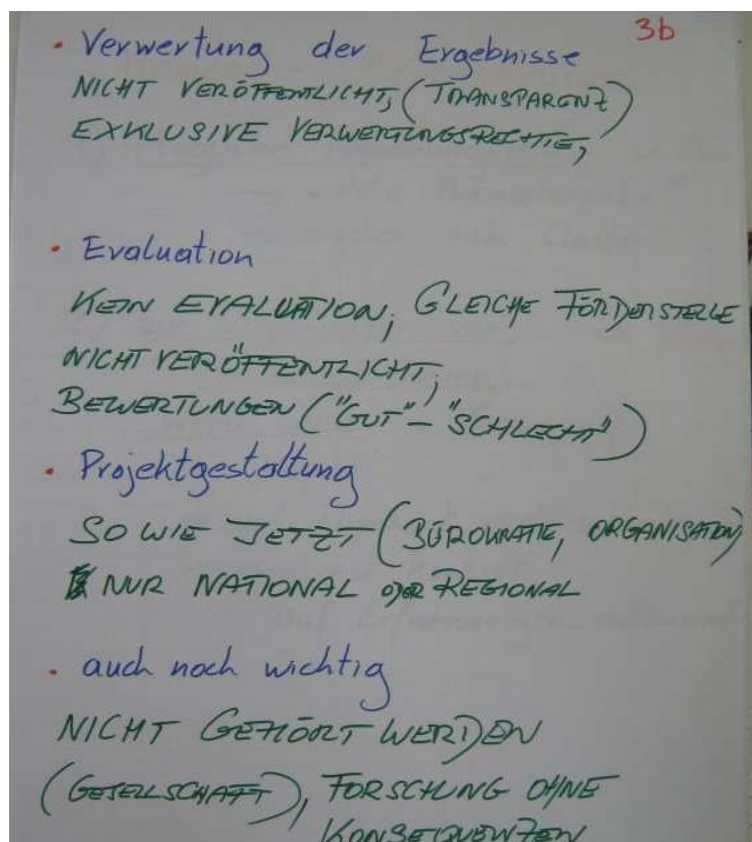 3b
• Verwertung der Ergebnisse
NICHT VERÖFFENTLICHT, (TRANSPARENZ)
EXKLUSIVE VERWERTUNGSRECHTE,
• Evaluation
KEIN EVALUATION, GLEICHE FÖRDERSTELLE
NICHT VERÖFFENTLICHT,
BEWERTUNGEN ("GUT" - "SCHLECHT")
• Projektgestaltung
SO WIE JETZT (BÜROKRATIE, ORGANISATION)
NUR NATIONAL ODER REGIONAL
• auch noch wichtig
NICHT GEHÖRT WERDEN
(GESELLSCHAFT), FORSCHUNG OHNE
KONSEQUENZEN